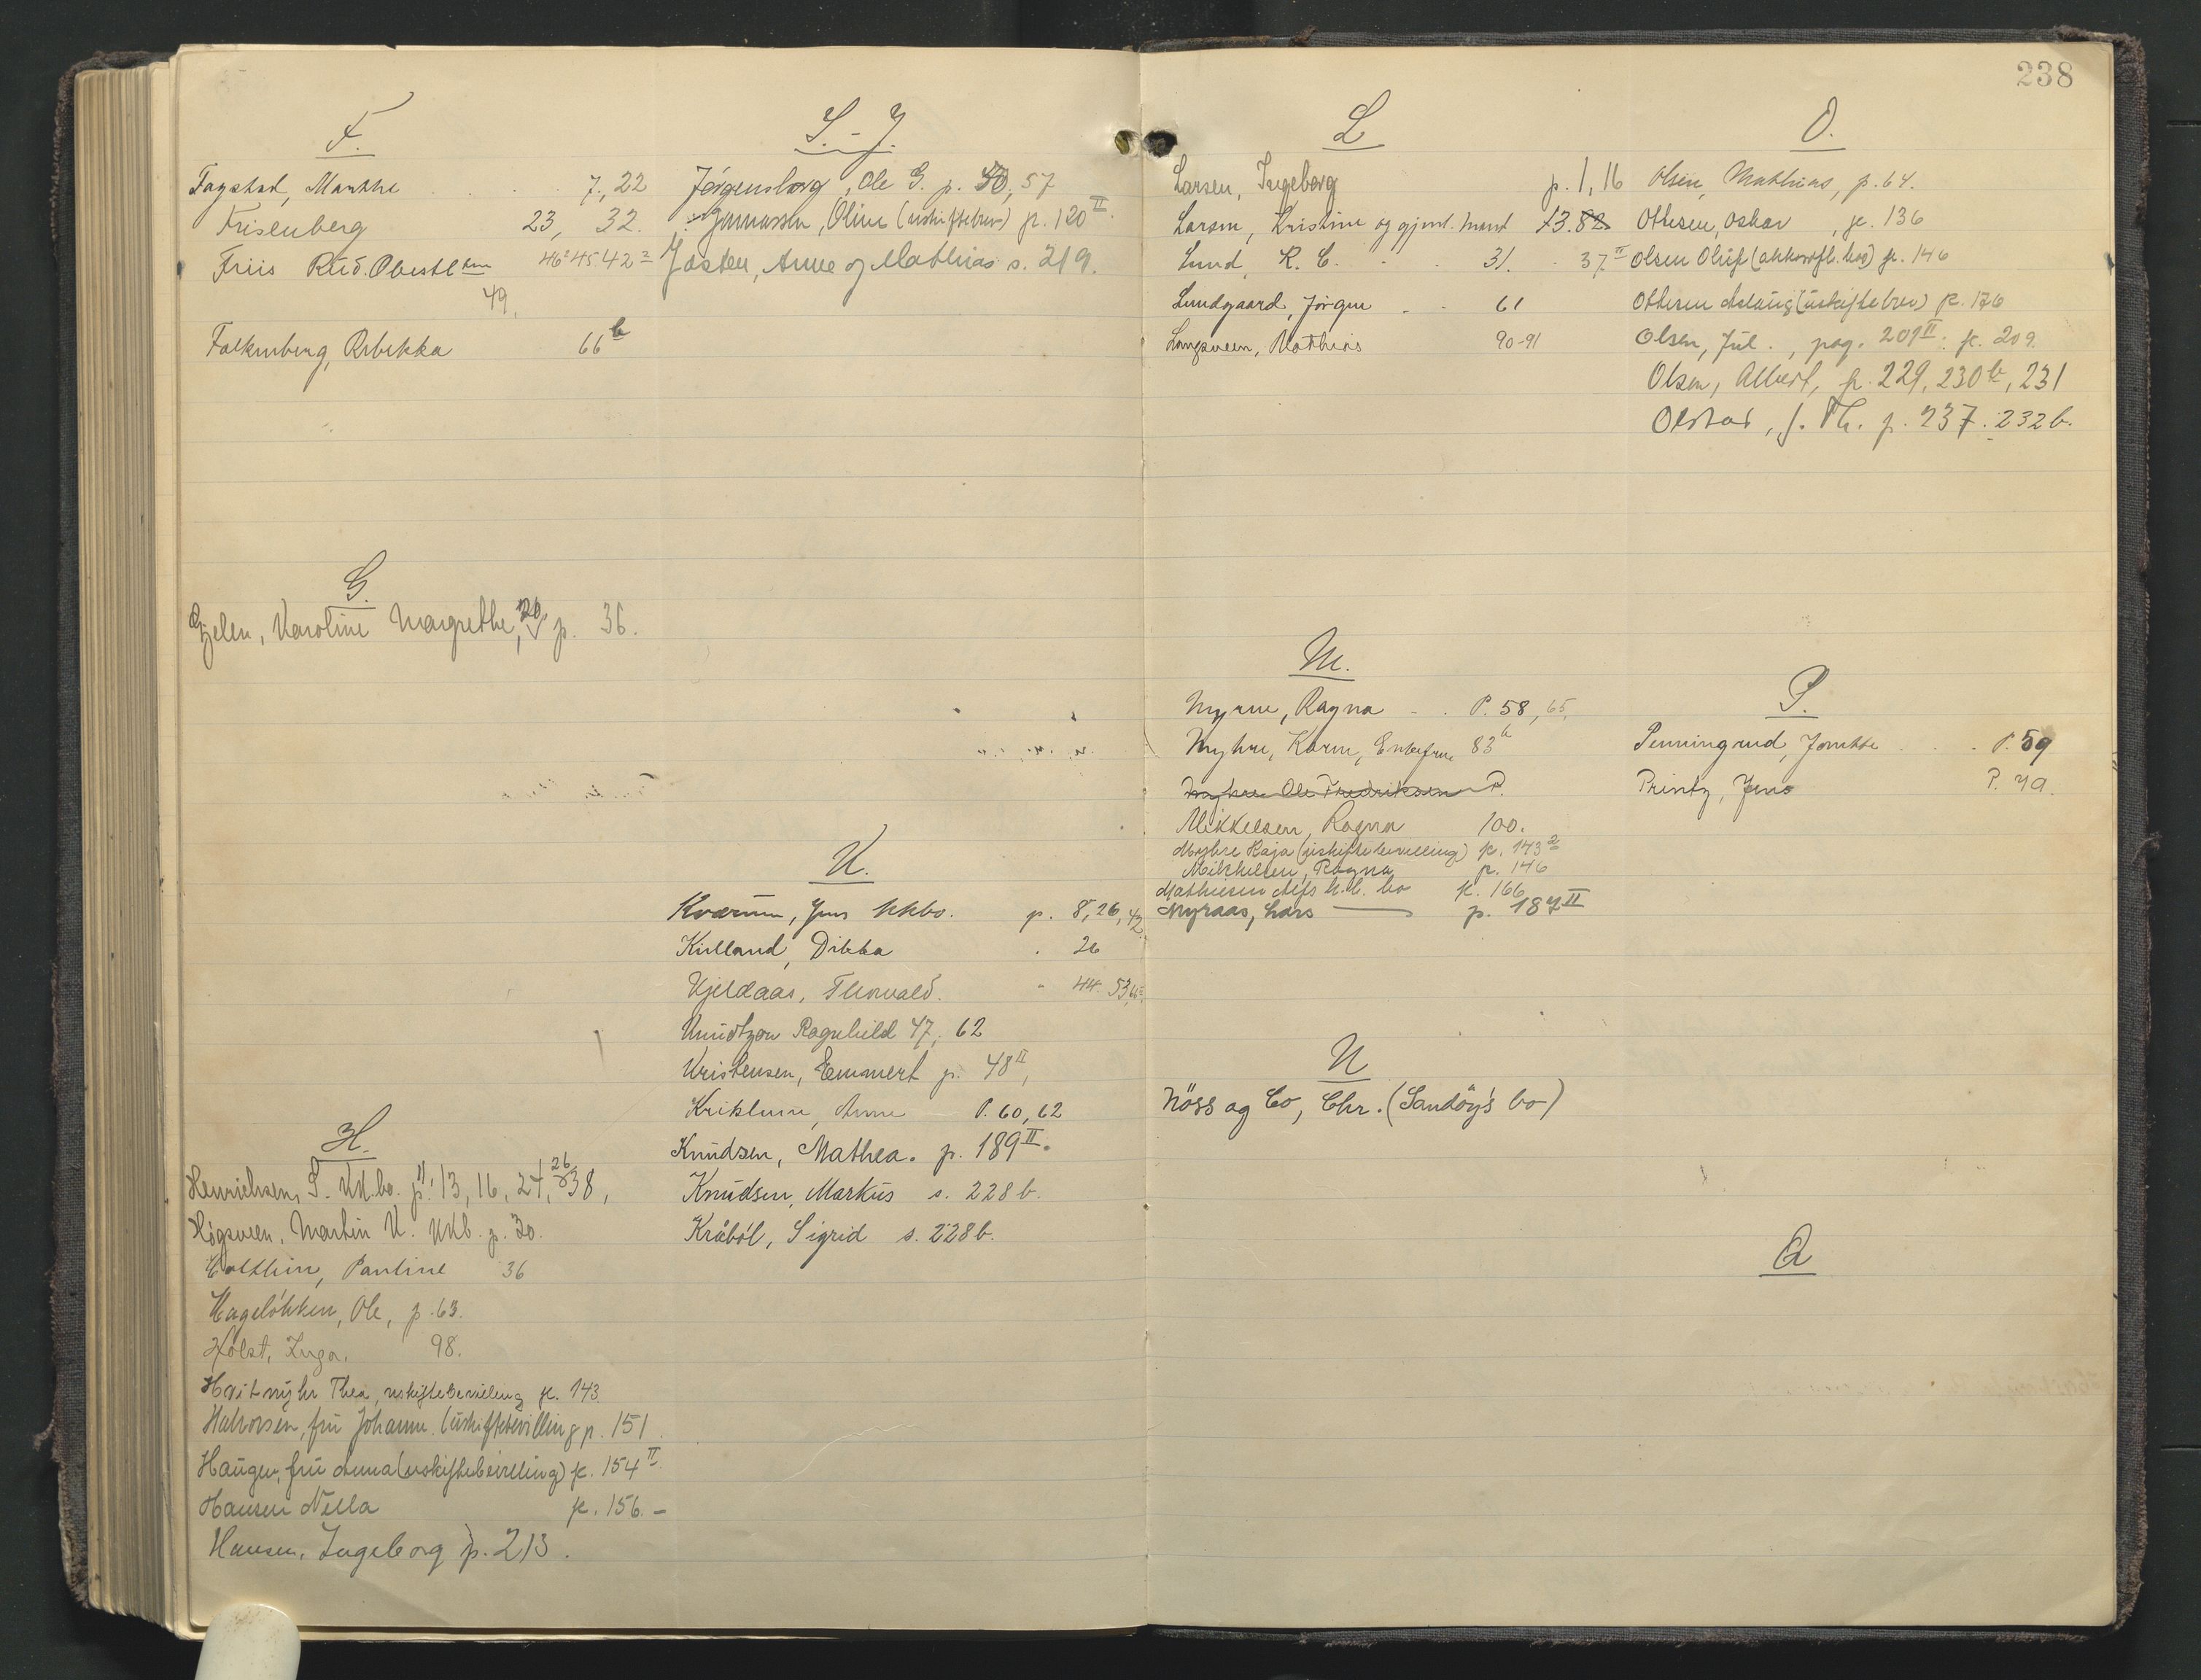 238
F.
Fagstad, Marthe 7, 22
Frisenberg 23, 32.
Friis Rud. Oberstltn 46² 45 42²
49.
Falkenberg, Rebekka 66b
G.
Gjelen, Karoline Margrethe, 20, p. 36.
H.
Henrichsen, S. KK.bo. p. 11, 13, 16, 24, 26, 38,
Högsveen, Martin K. KKb. p. 30.
Pauline 36
Hagelökken, Ole, p. 63.
Holst, Inga. 98.
Hvitmyhr Thea, uskiftebevilling p. 143
Halvorsen, fru Johanne (uskiftebevilling p. 151.
Haugen, fru Anna (uskiftebevilling) p. 154 II
Hansen Nella p. 156. -
Hansen, Ingeborg p. 213.
I. - J.
Jörgensborg, Ole G. p. 50, 57
Oline (uskiftebrev) p. 120 II.
Josten, Anne og Mathias s. 219.
K.
Kværum, Jens kkbo. p. 8, 26, 42
Kielland, Dikka . 26
Kjeldaas, Thorvald. " 44. 53,
Knudtzon Ragnhild 47, 62
Kristensen, Emmert p. 48 II,
Anne P. 60, 62
Knudsen, Mathea. p. 189 II.
Knudsen, Markus s. 228 b.
Kråböl, Sigrid s. 228 b.
L
Larsen, Ingeborg p. 1, 16
Larsen, Kristine og gjenl. mand 13. 82
Lund, K. C. 31. 37 II
Lundgaard, Jörgen 61
Langsveen, Mathias 90-91
M.
Myrne, Ragna P. 58, 65,
Myhre, Karen, Enkefru 83b
Myhre Ole Fredriksen P.
Mikkelsen, Ragna 100.
Myhre Kaja (uskiftebevilling) p. 143 a
Mikkelsen, Ragna p. 146
Mathiesen Alfs k.k. bo p. 166
Myraas, Lars — p. 187 II
N
Nöss og Co, Chr. (Sandöy's bo)
O.
Olsen, Mathias, p. 64.
Ottesen, Oskar, p. 136
Olsen Oluf (akkordfl. bo) p. 146
Ottesen Aslaug (uskiftebrev) p. 176
Olsen, Jul., pag. 201 II. p. 209.
Olsen, Albert, p. 229, 230 b, 231
Olstad, J. Th. p. 237. 232 b.
P.
Penningrud, Jonette P. 59
Printz, Jens P. 79.
Q